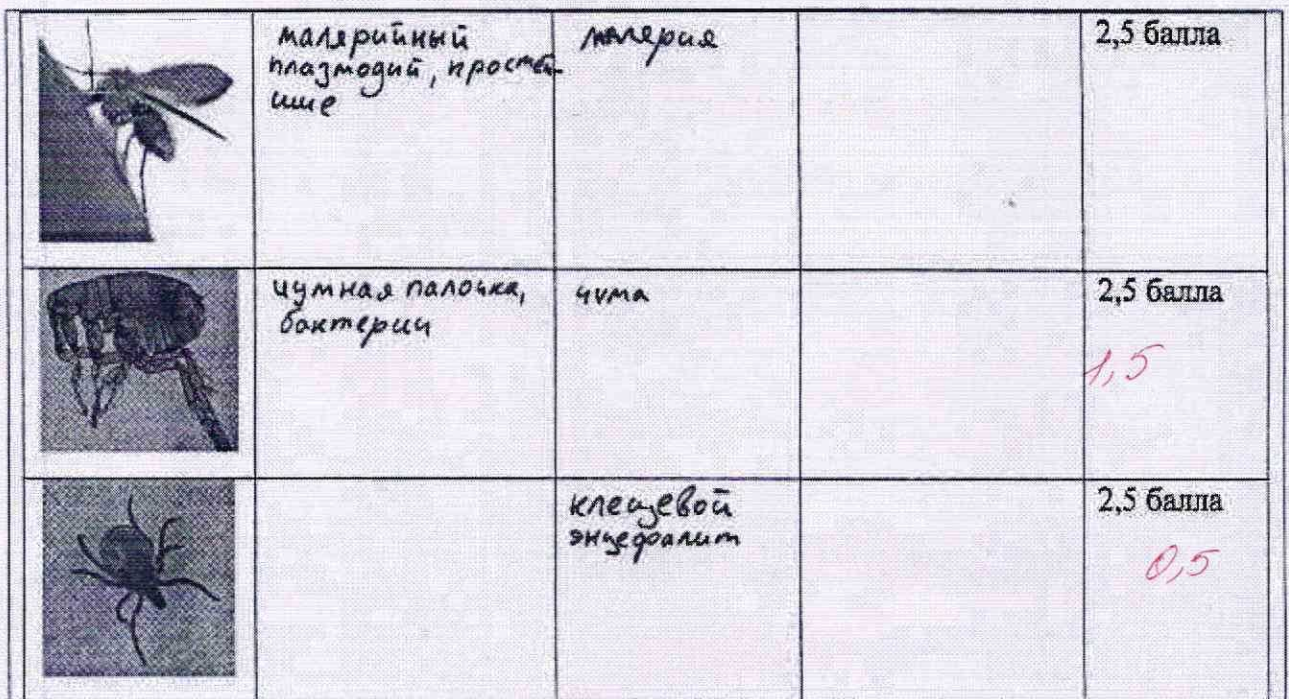 малярийный
плазмодий, простей-
шие
малярия
2,5 балла
чумная палочка,
бактерии
чума
2,5 балла
1,5
клещевой
энцефалит
2,5 балла
0,5